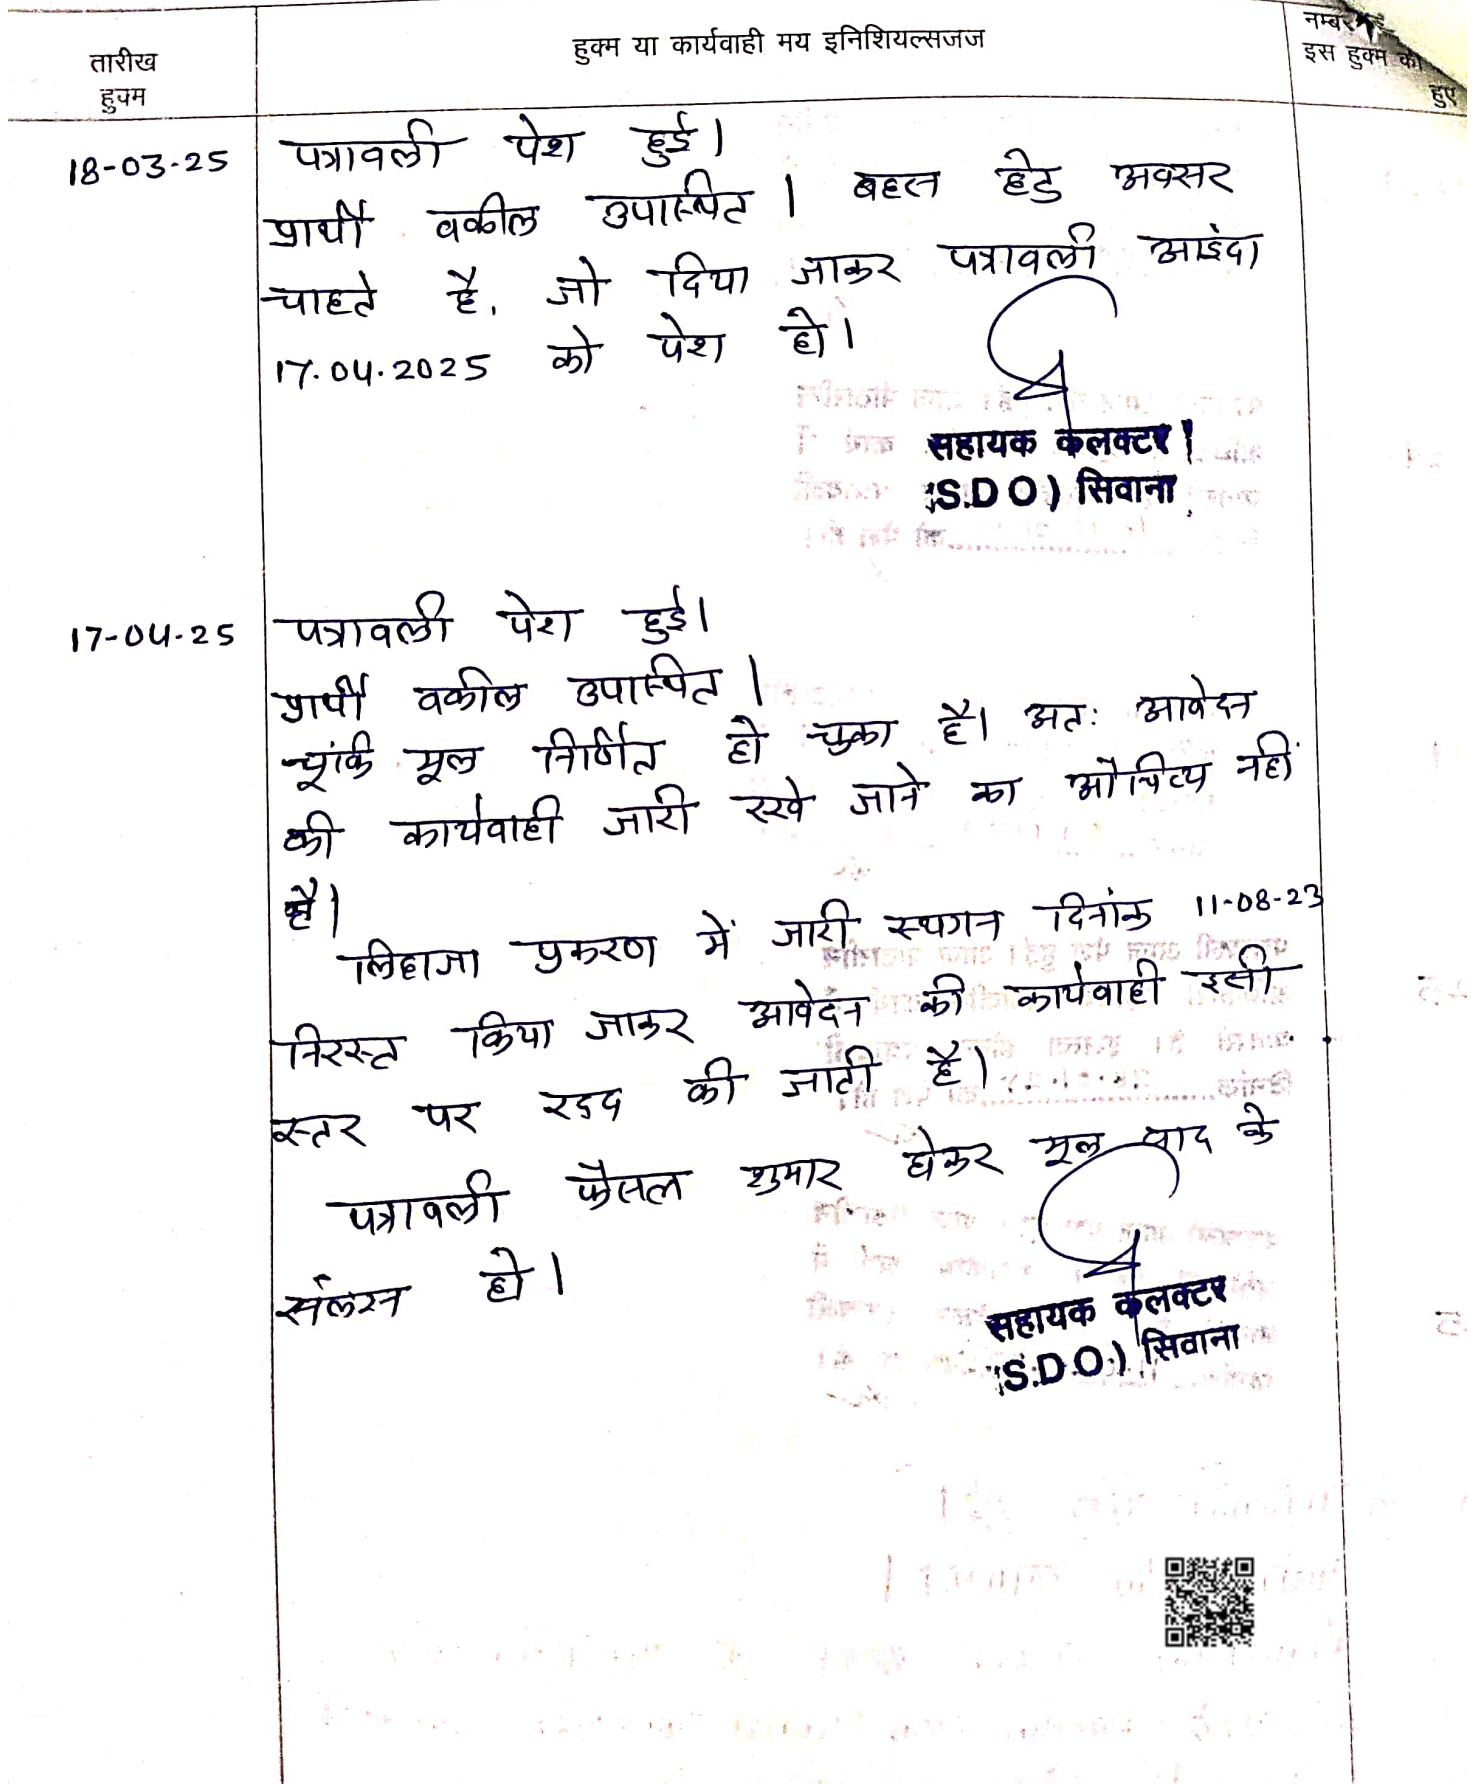 तारीख
हुक्म
हुक्म या कार्यवाही मय इनिशियल्सजज
नम्बर
इस हुक्म की
हुए
18-03-25
पत्रावली पेश हुई।
प्रार्थी वकील उपस्थित । बहस हेतु अवसर
चाहते है, जो दिया जाकर पत्रावली आइंदा
17.04.2025 को पेश हो।
सहायक कलक्टर
(S.D O) सिवाना
17-04-25
पत्रावली पेश हुई।
प्रार्थी वकील उपस्थित ।
चूंकि मूल निर्णित हो चुका है। अतः आवेदन
की कार्यवाही जारी रखे जाने का औचित्य नहीं
है।
लिहाजा प्रकरण में जारी स्थगन दिनांक 11-08-23
निरस्त किया जाकर आवेदन की कार्यवाही इसी
स्तर पर रद्द की जाती है।
पत्रावली फैसल शुमार होकर मूल वाद के
संलग्न हो।
सहायक कलक्टर
(S.D.O.) सिवाना